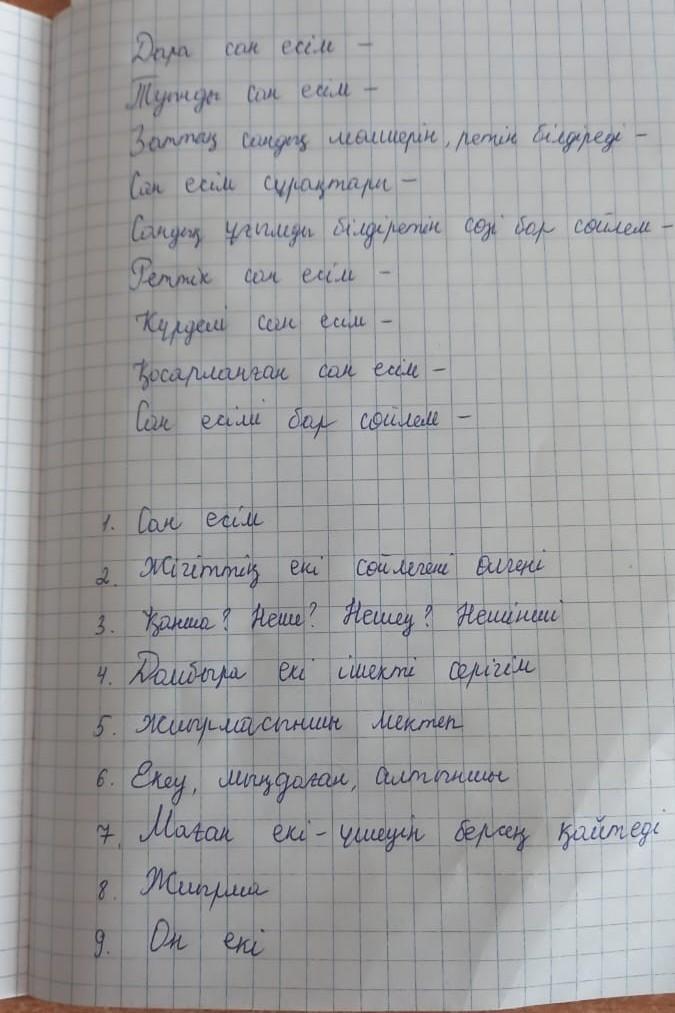 Дара сан есім –
Туынды сан есім –
Заттың сандық мөлшерін, ретін білдіреді –
Сан есім сұрақтары –
Сандық ұғымды білдіретін сөзі бар сөйлем –
Реттік сан есім –
Күрделі сан есім –
Қосарланған сан есім –
Сан есімі бар сөйлем –
1. Сан есім
2. Жігіттің екі сөйлегені өлгені
3. Қанша? Неше? Нешеу? Нешінші
4. Домбыра екі ішекті серігім
5. Жиырмасыншы мектеп
6. Екеу, мыңдаған, алтыншы
7. Маған екі-үшеуін берсең қайтеді
8. Жиырма
9. Он екі